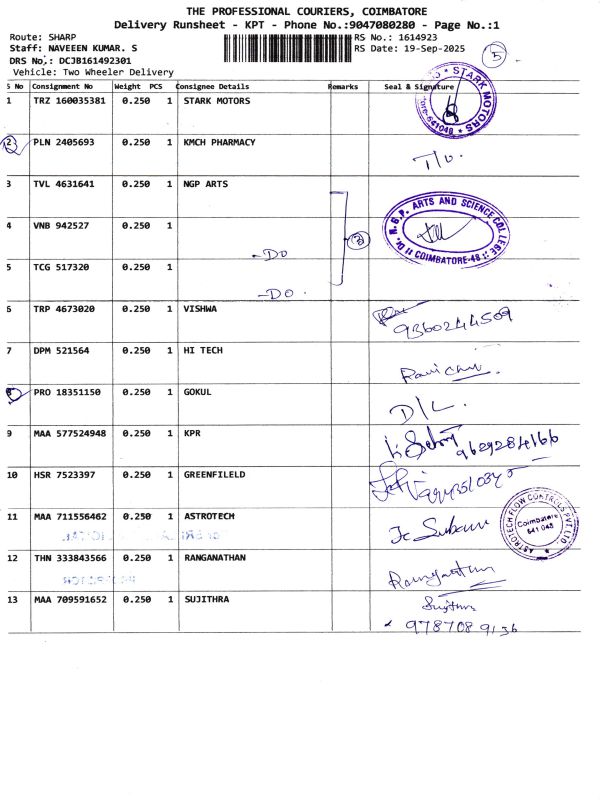 THE PROFESSIONAL COURIERS, COIMBATORE
Delivery Runsheet - KPT - Phone No.:9047080280 - Page No.:1
Route: SHARP RS No.: 1614923
Staff: NAVEEEN KUMAR. S RS Date: 19-Sep-2025 5
DRS No.: DCJB161492301
Vehicle: Two Wheeler Delivery
S No Consignment No Weight PCS Consignee Details Remarks Seal & Signature
STARK MOTORS 641048
1 TRZ 160035381 0.250 1 STARK MOTORS
2 PLN 2405693 0.250 1 KMCH PHARMACY
3 TVL 4631641 0.250 1 NGP ARTS
Dr. N.G.P. ARTS AND SCIENCE COLLEGE COIMBATORE-48
4 VNB 942527 0.250 1
3
-DO
5 TCG 517320 0.250 1
-DO.
6 TRP 4673020 0.250 1 VISHWA
9360244509
7 DPM 521564 0.250 1 HI TECH
8 PRO 18351150 0.250 1 GOKUL
D/L.
9 MAA 577524948 0.250 1 KPR
9629284166
10 HSR 7523397 0.250 1 GREENFILELD
11 MAA 711556462 0.250 1 ASTROTECH
ASTROTECH FLOW CONTROLS PVT LTD. Coimbatore 641 048
12 THN 333843566 0.250 1 RANGANATHAN
Ranganathan
13 MAA 709591652 0.250 1 SUJITHRA
9787089136